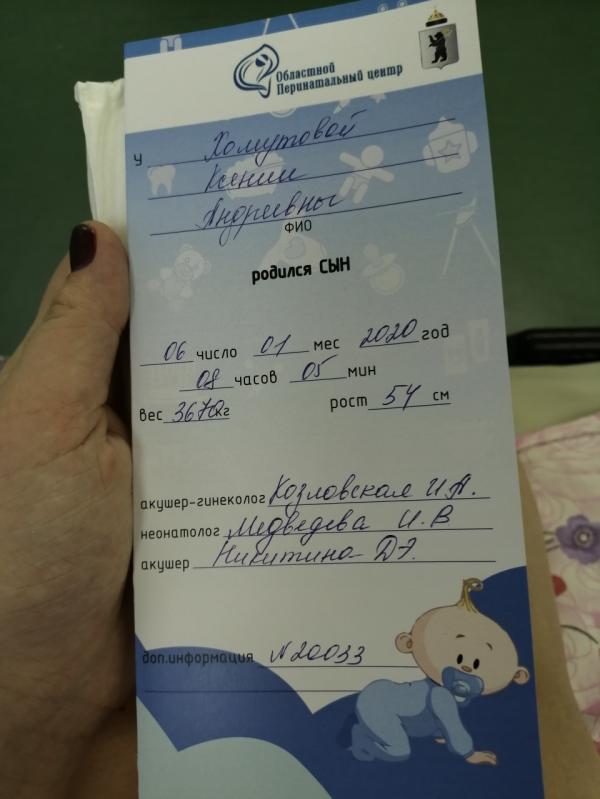 Областной
Перинатальный центр
у Хомутовой
Ксении
Андреевны
ФИО
родился СЫН
06 число 01 мес 2020 год
08 часов 05 мин
вес 3670 кг рост 54 см
акушер-гинеколог Козловская И.А.
неонатолог Медведева И.В
акушер Никитина Д.Э.
доп.информация N20033